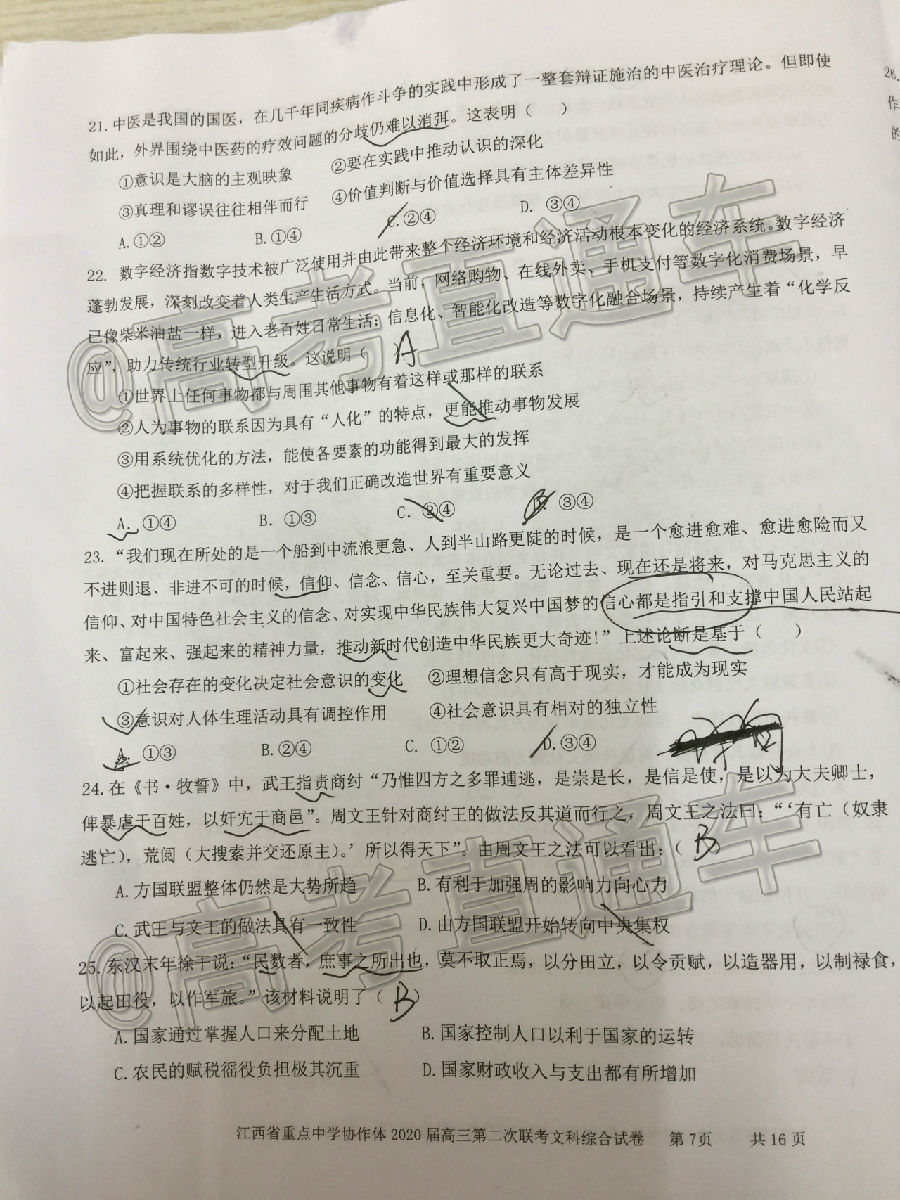 21. 中医是我国的国医，在几千年同疾病作斗争的实践中形成了一整套辩证施治的中医治疗理论。但即使
如此，外界围绕中医药的疗效问题的分歧仍难以消弭。这表明（　　）
①意识是大脑的主观映象　②要在实践中推动认识的深化
③真理和谬误往往相伴而行　④价值判断与价值选择具有主体差异性
A. ①②　B. ①④　C. ②④　D. ③④
22. 数字经济指数字技术被广泛使用并由此带来整个经济环境和经济活动根本变化的经济系统。数字经济
蓬勃发展，深刻改变着人类生产生活方式。当前，网络购物、在线外卖、手机支付等数字化消费场景，早
已像柴米油盐一样，进入老百姓日常生活；信息化、智能化改造等数字化融合场景，持续产生着“化学反
应”，助力传统行业转型升级。这说明（ A
①世界上任何事物都与周围其他事物有着这样或那样的联系
②人为事物的联系因为具有“人化”的特点，更能推动事物发展
③用系统优化的方法，能使各要素的功能得到最大的发挥
④把握联系的多样性，对于我们正确改造世界有重要意义
A. ①④　B. ①③　C. ②④　D. ③④
23. “我们现在所处的是一个船到中流浪更急、人到半山路更陡的时候，是一个愈进愈难、愈进愈险而又
不进则退、非进不可的时候，信仰、信念、信心，至关重要。无论过去、现在还是将来，对马克思主义的
信仰、对中国特色社会主义的信念、对实现中华民族伟大复兴中国梦的信心都是指引和支撑中国人民站起
来、富起来、强起来的精神力量，推动新时代创造中华民族更大奇迹！”上述论断是基于（　　）
①社会存在的变化决定社会意识的变化　②理想信念只有高于现实，才能成为现实
③意识对人体生理活动具有调控作用　④社会意识具有相对的独立性
A. ①③　B. ②④　C. ①②　D. ③④
24. 在《书·牧誓》中，武王指责商纣“乃惟四方之多罪逋逃，是崇是长，是信是使，是以为大夫卿士，
俾暴虐于百姓，以奸宄于商邑”。周文王针对商纣王的做法反其道而行之，周文王之法曰：“‘有亡（奴隶
逃亡），荒阅（大搜索并交还原主）。’所以得天下”，由周文王之法可以看出：（ B ）
A. 方国联盟整体仍然是大势所趋　B. 有利于加强周的影响力向心力
C. 武王与文王的做法具有一致性　D. 由方国联盟开始转向中央集权
25. 东汉末年徐干说：“民数者，庶事之所出也，莫不取正焉，以分田立，以令贡赋，以造器用，以制禄食，
以起田役，以作军旅。”该材料说明了（ B ）
A. 国家通过掌握人口来分配土地　B. 国家控制人口以利于国家的运转
C. 农民的赋税徭役负担极其沉重　D. 国家财政收入与支出都有所增加
江西省重点中学协作体 2020 届高三第二次联考文科综合试卷　第 7页　共 16 页
@高考直通车
@高考直通车
26.
作
的